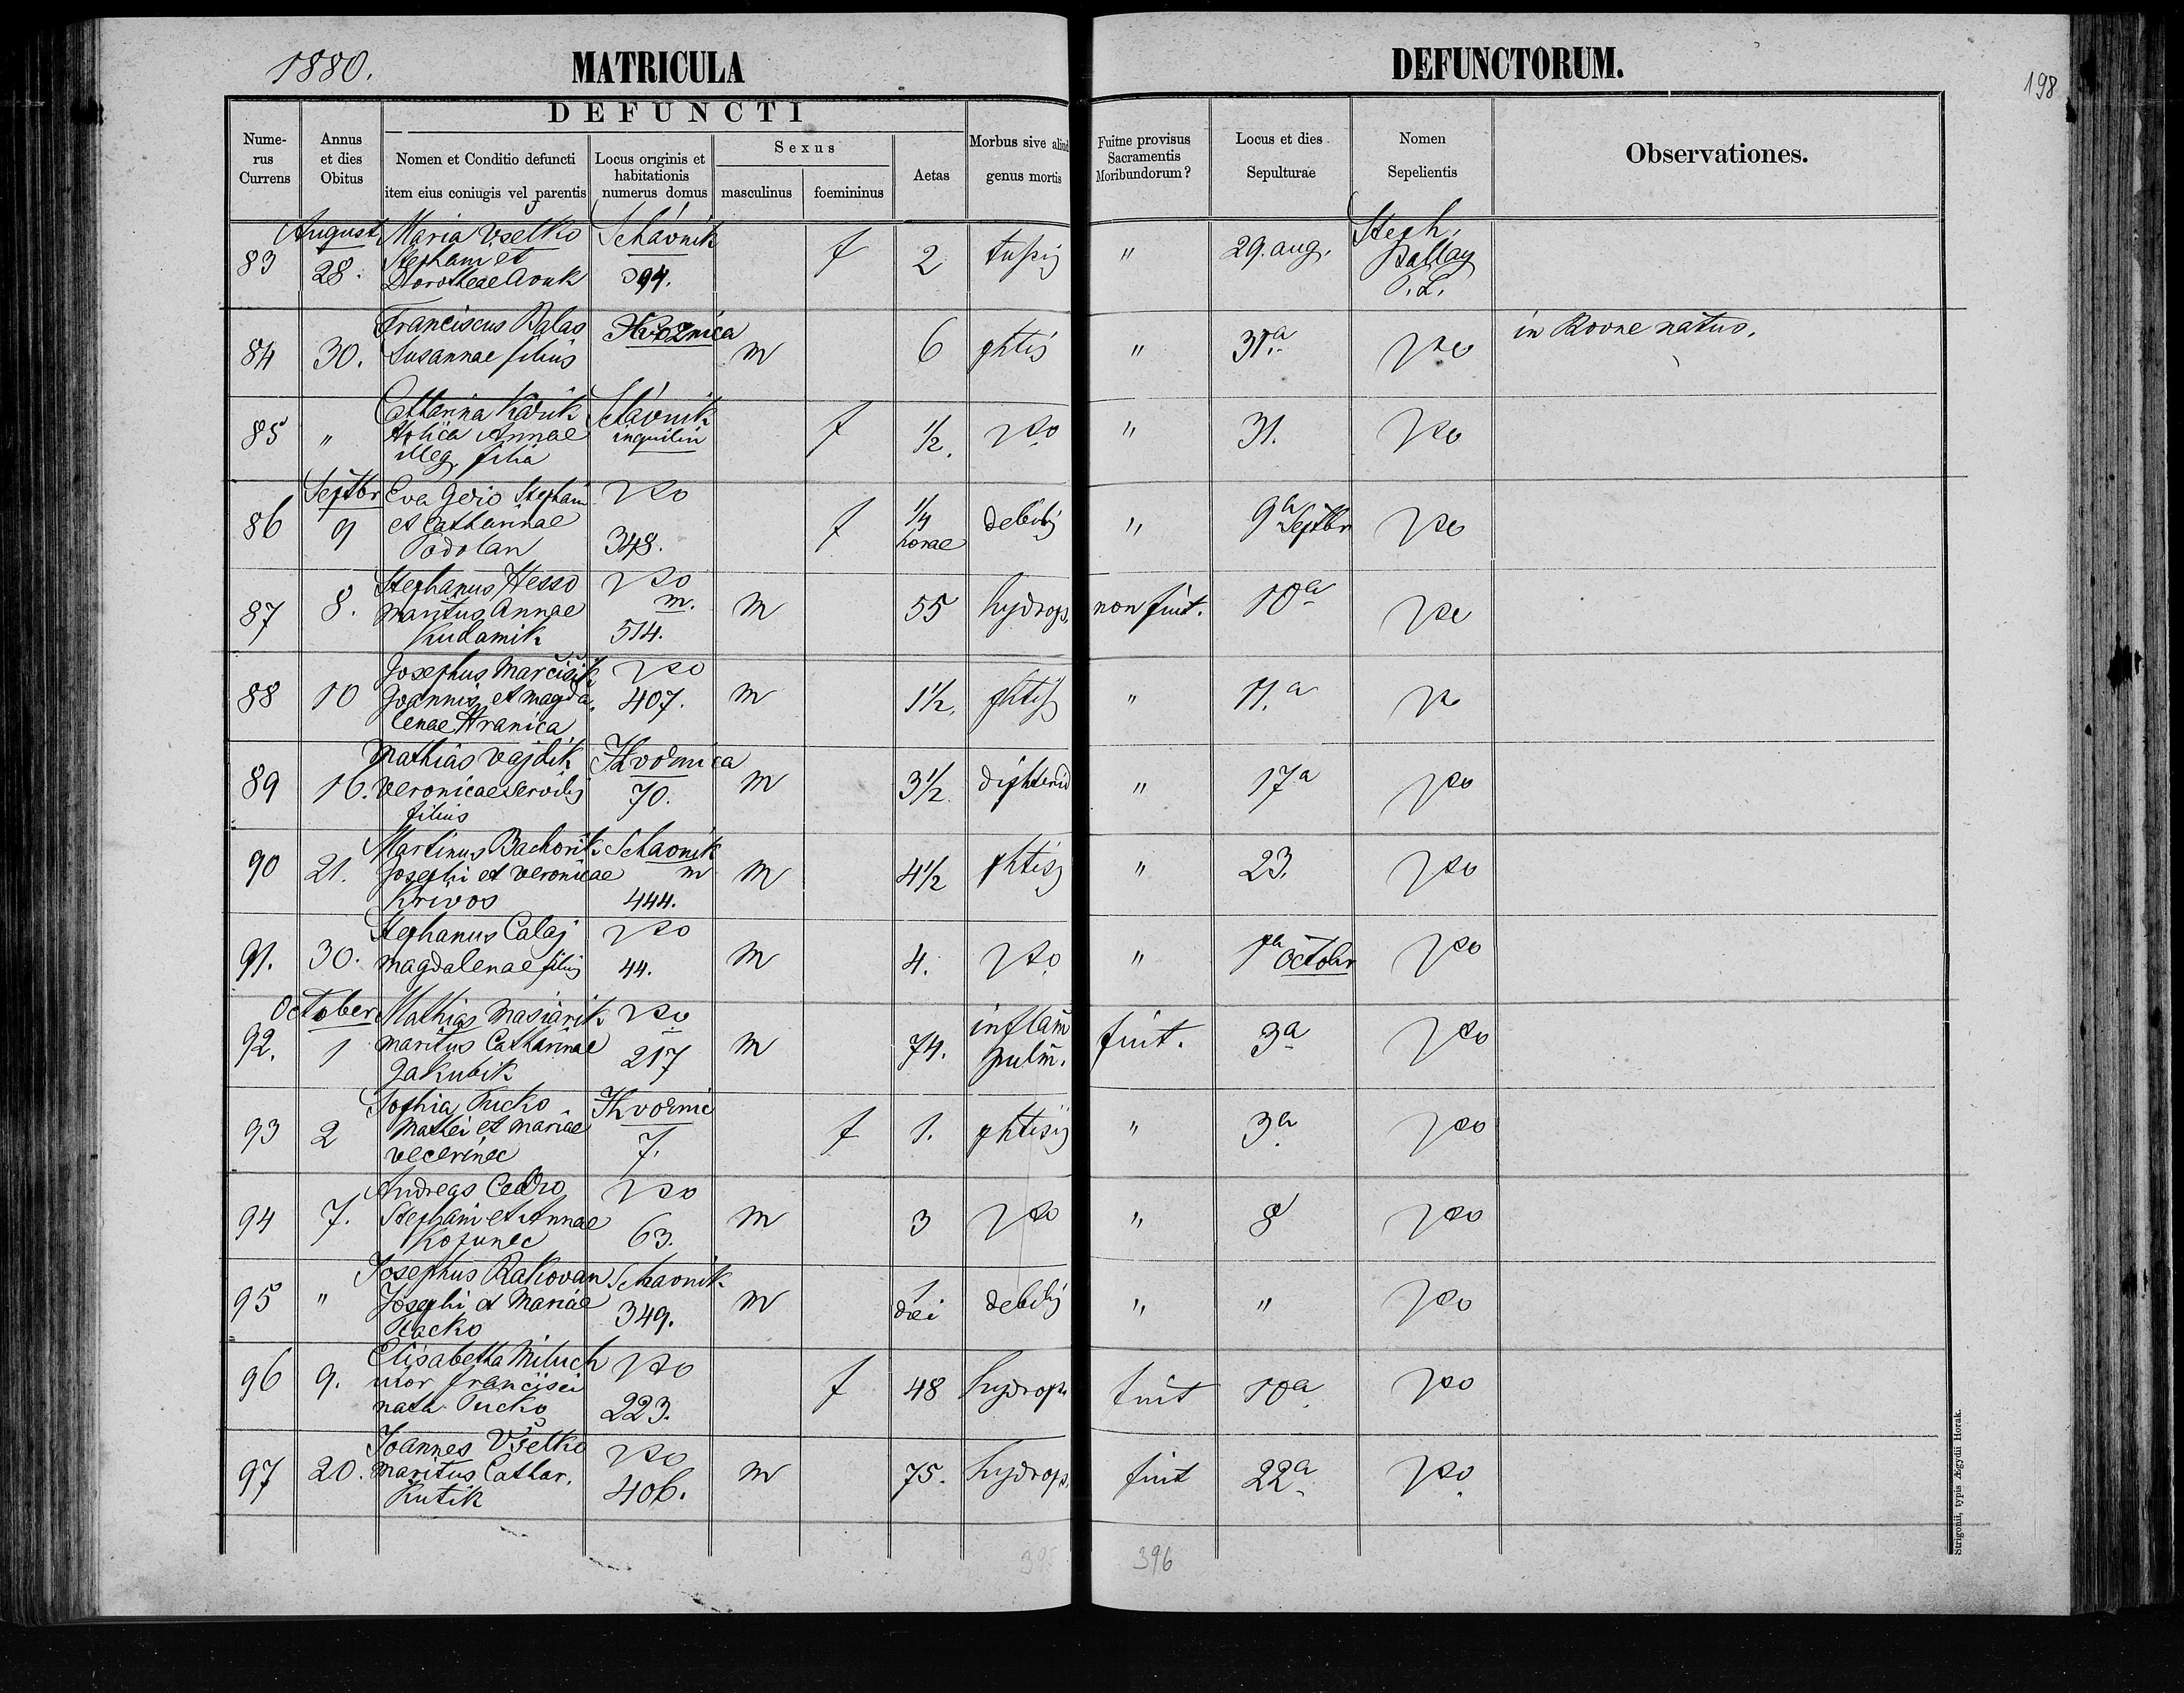 1880.
MATRICULA
DEFUNCTORUM.
198
DEFUNCTI
Nume-
rus
Currens
Annus
et dies
Obitus
Nomen et Conditio defuncti
item eius coniugis vel parentis
Locus originis et
habitationis
numerus domus
Sexus
masculinus
foemininus
Aetas
Morbus sive aliud
genus mortis
Fuitne provisus
Sacramentis
Moribundorum?
Locus et dies
Sepulturae
Nomen
Sepelientis
Observationes.
83
August
28.
Maria Vselko
Stephani et
Dorotheae
Schávnik
394.
f
2
tussis
"
29. aug.
Steph.
Ballay
P. L.
84
30.
Franciscus Balas
Susannae filius
m
6
phtis
"
31.a
in Rovne natus.
85
"
Cattarina
Annae
illeg. filia
inquilin
f
1/2.
"
31.
86
Septbr
9
Eva Gerio Stephani
et Catharinae
Podolan
348.
f
1/4
horae
debilis
"
9a
Septbr
87
8.
Stephanus Hesso
maritus Annae
Kudamik
m.
514.
m
55
hydrops.
non fuit.
10a
88
10
Josephus Marčišik
Joannis et Magda-
lenae Hranica
407.
m
1 1/2.
phtis
"
11.a
89
16.
Mathias Vajdik
Veronicae servilis
filius
70.
m
3 1/2
diphterid
"
17a
90
21.
Martinus Bachorik
Josephi et Veronicae
Krivos
Schavnik
m
444.
m
4 1/2
phtisis
"
23.
91.
30.
Stephanus Calaj
Magdalenae filius
44.
m
4.
"
1a Octobr
October
92.
1
Mathias Masiarik
maritus Catharinae
Jakubik
217
m
74.
inflam
pulm.
fuit.
3a
93
2
Sophia Pucko
Mathei et Mariae
Vecerinec
7.
f
1.
phtisis
"
3a
94
7.
Andreas Cedro
Stephani et Annae
63.
m
3
"
8
95
"
Josephus Rakovan
Josephi et Mariae
Schavnik
349.
m
1
diei
debilis
"
"
96
9.
Elisabetha Miluch
uxor Francisci
nata Pucko
223.
f
48
hydrops
fuit
10a
97
20.
Joannes Všelko
maritus Cathar.
Kutik
406.
m
75.
hydrops.
fuit
22a
395
396
Strigonii, typis Ægydii Horak.